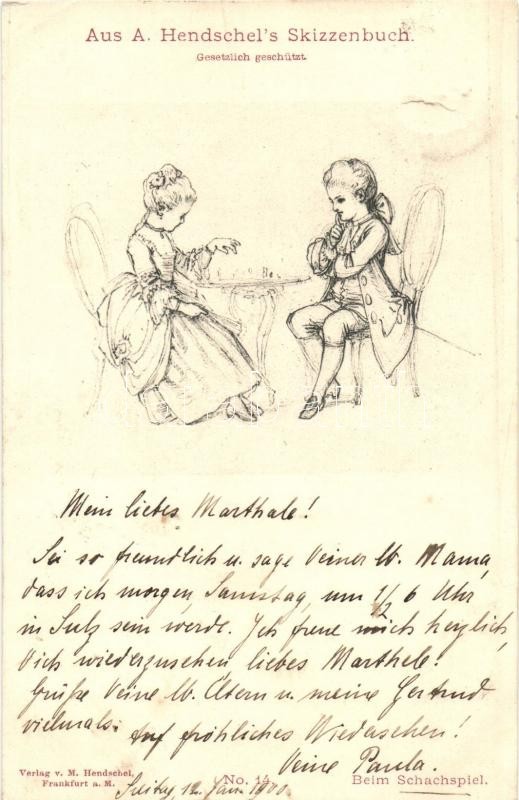 Aus A. Hendschel's Skizzenbuch.
Gesetzlich geschützt.
Mein liebes Marthale!
Sei so freundlich u. sage Deiner lb. Mama,
dass ich morgen, Samstag, um 1/2 6 Uhr
in Sulz sein werde. Ich freue mich herzlich,
Dich wiederzusehen liebes Marthele!
Grüße Deine lb. Eltern u. meine Gertrud
vielmals. Auf fröhliches Wiedasehen!
Deine Paula.
Verlag v. M. Hendschel,
Frankfurt a. M.
No. 14.
Beim Schachspiel.
12. Jan. 1900